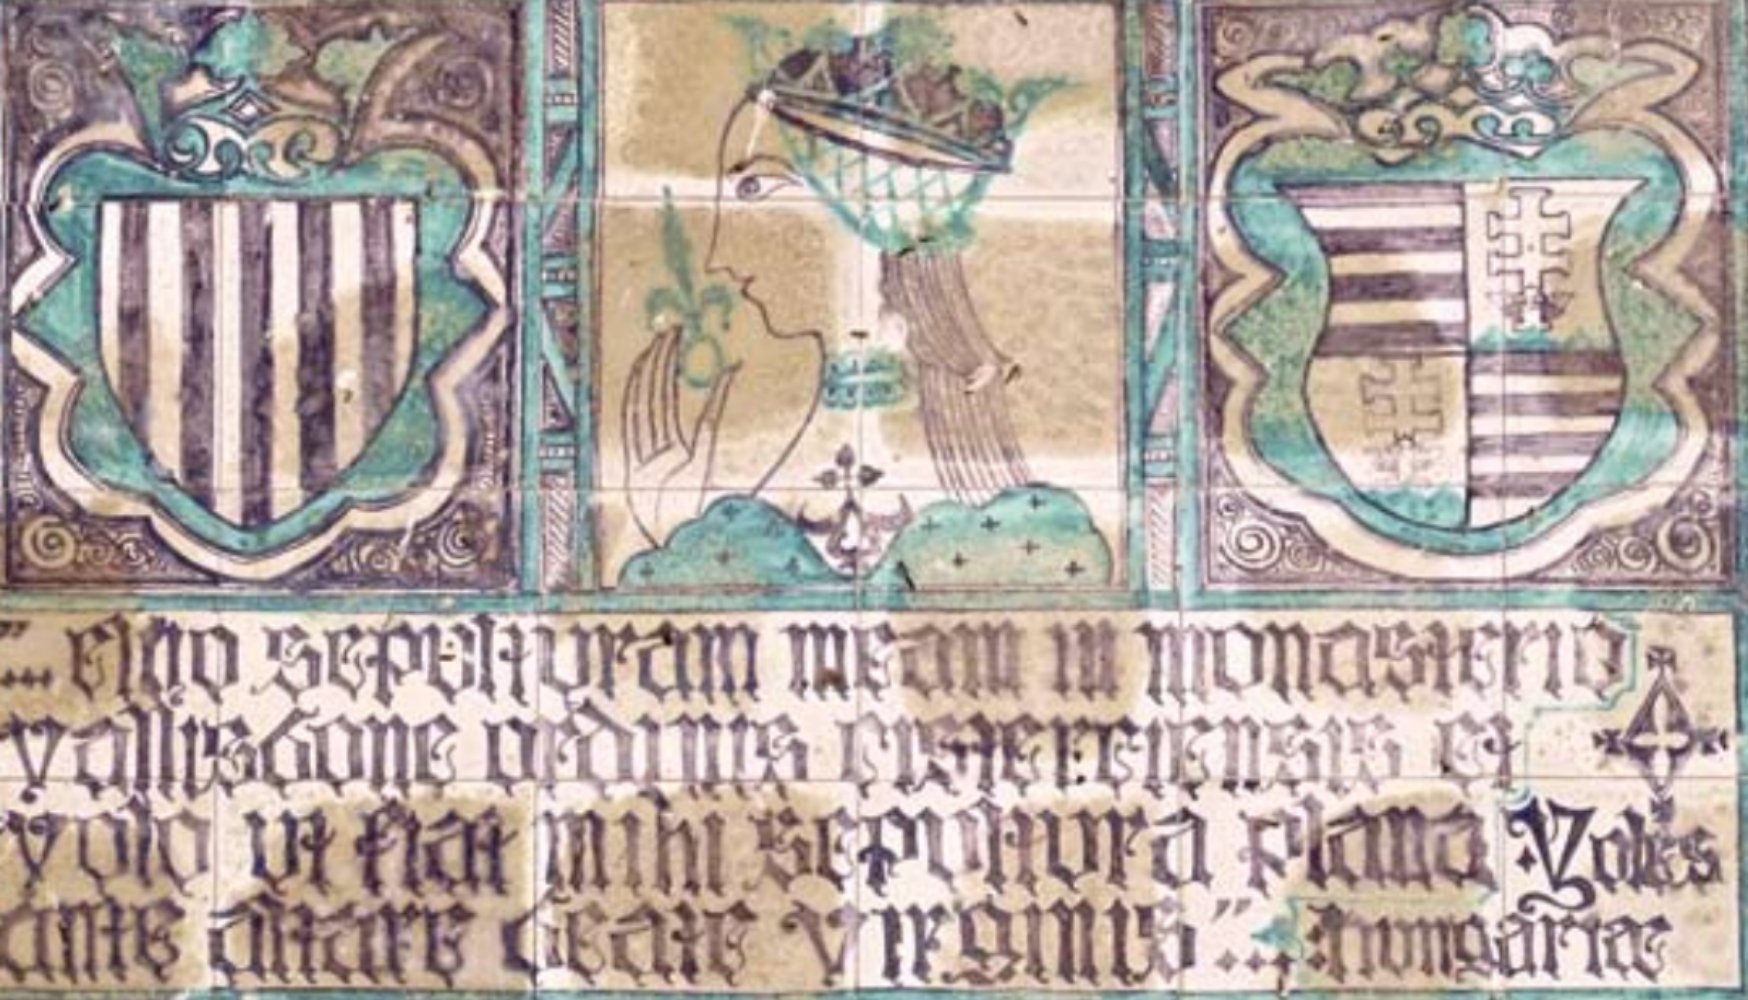 "... eligo sepulturam meam in monasterio
vallisbone ordinis cisterciensis et
volo ut fiat mihi sepultura plana Yoles
ante altare beate virginis"... hungariae